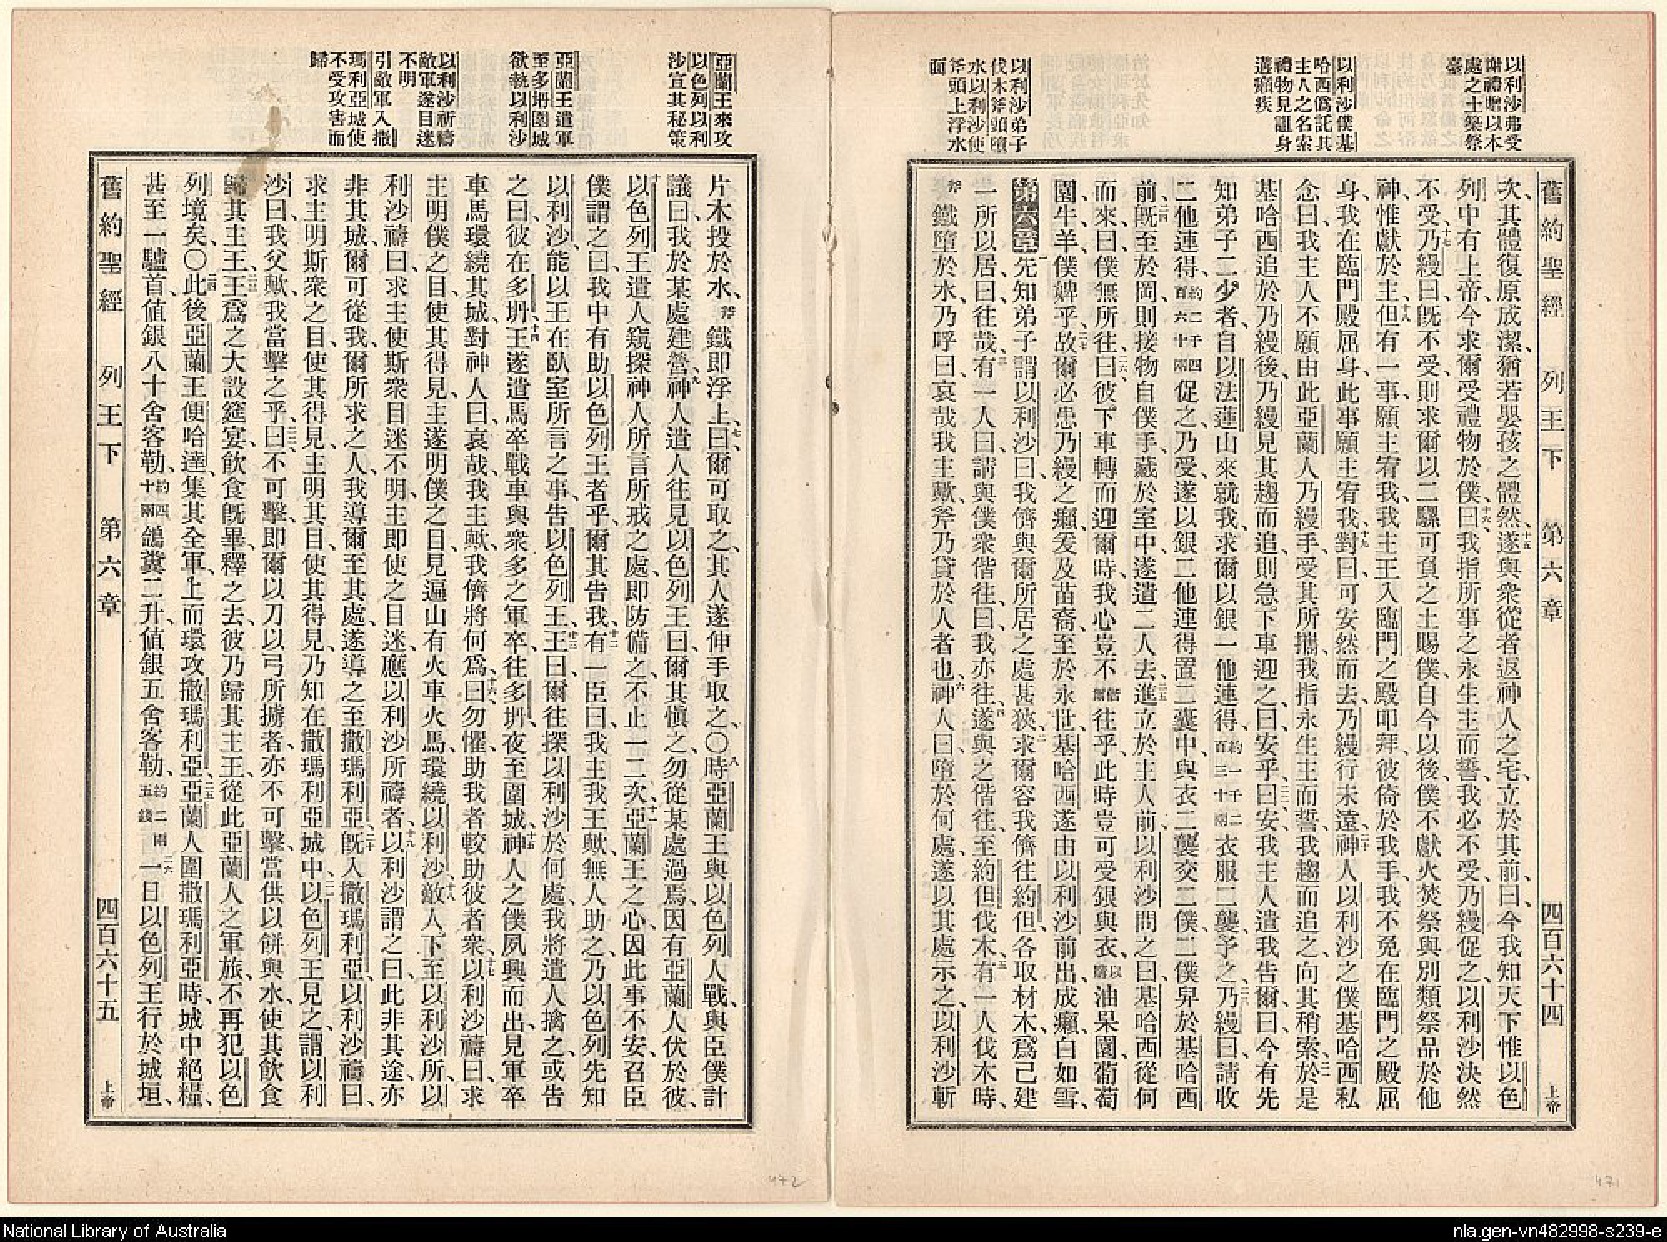 以利沙弗受
謝禮贈以木
處之土築祭
臺
以利沙僕基
哈西僞託其
主人之名索
禮物見譴身
遘癩疾
以利沙弟子
伐木斧頭墮
水以利沙使
斧頭上浮水
面
舊約聖經 列王下 第六章 四百六十四 上帝
次、其體復原成潔、猶若嬰孩之體然、十五遂與衆從者返神人之宅、立於其前、曰、今我知天下惟以色
列中有上帝、今求爾受禮物於僕、十六曰、我指所事之永生主而誓、我必不受、乃縵促之、以利沙決然
不受、十七乃縵曰、既不受、則求爾以二騾可負之土賜僕、自今以後、僕不獻火焚祭與別類祭品於他
神、惟獻於主、十八但有一事、願主宥我、我主王入臨門之殿叩拜、彼倚於我手、我不免在臨門之殿屈
身、我在臨門殿屈身、此事願主宥我、十九對曰、可安然而去、乃縵行未遠、二十神人以利沙之僕基哈西私
念曰、我主人不願由此亞蘭人乃縵手、受其所攜、我指永生主而誓、我趨而追之、向其稍索、二一於是
基哈西追於乃縵後、乃縵見其趨而追、則急下車迎之、曰、安乎、二二曰、安、我主人遣我告爾曰、今有先
知弟子二少者、自以法蓮山來就我、求爾以銀一他連得、約一千二百三十兩衣服二襲予之、二三乃縵曰、請收
二他連得、約二千四百六十兩促之、乃受、遂以銀二他連得置二囊中、與衣二襲、交二僕、二僕舁於基哈西
前、二四既至於岡、則接物自僕手、藏於室中、遂遣二人去、二五進立於主人前、以利沙問之曰、基哈西從何
而來、曰、僕無所往、二六曰、彼下車轉而迎爾時、我心豈不偕爾往乎、此時豈可受銀與衣、以購油果園、葡萄
園、牛羊、僕婢乎、二七故爾必患乃縵之癩、爰及苗裔、至於永世、基哈西遂由以利沙前出、成癩、白如雪、
第六章 一先知弟子謂以利沙曰、我儕與爾所居之處甚狹、二求爾容我儕往約但、各取材木、爲己建
一所以居、曰、往哉、三有一人曰、請與僕衆偕往、曰、我亦往、四遂與之偕往、至約但伐木、五有一人伐木時、
斧鐵墮於水、乃呼曰、哀哉我主歟、斧乃貸於人者也、六神人曰、墮於何處、遂以其處示之、以利沙斬
亞蘭王來攻
以色列以利
沙宣其秘策
亞蘭王遣軍
至多坍圍城
欲執以利沙
以利沙祈禱
敵軍遂目迷
不明
引敵軍入撒
瑪利亞城使
不受攻害而
歸
片木投於水、斧鐵即浮上、七曰、爾可取之、其人遂伸手取之、〇八時亞蘭王與以色列人戰、與臣僕計
議曰、我於某處建營、九神人遣人往見以色列王曰、爾其愼之、勿從某處過焉、因有亞蘭人伏於彼、
十以色列王遣人窺探神人所言所戒之處、即防備之、不止一二次、十一亞蘭王之心、因此事不安、召臣
僕謂之曰、我中有助以色列王者乎、爾其告我、十二有一臣曰、我主我王歟、無人助之、乃以色列先知
以利沙、能以王在臥室所言之事、告以色列王、十三王曰、爾往探以利沙於何處、我將遣人擒之、或告
之曰、彼在多坍、十四王遂遣馬卒戰車、與衆多之軍卒、往多坍、夜至圍城、十五神人之僕夙興而出、見軍卒
車馬環繞其城、對神人曰、哀哉我主歟、我儕將何爲、十六曰、勿懼、助我者較助彼者衆、十七以利沙禱曰、求
主明僕之目、使其得見、主遂明僕之目、見遍山有火車火馬、環繞以利沙、十八敵人下至以利沙所、以
利沙禱曰、求主使斯衆目迷不明、主即使之目迷、應以利沙所禱者、十九以利沙謂之曰、此非其途、亦
非其城、爾可從我、爾所求之人、我導爾至其處、遂導之至撒瑪利亞、二十既入撒瑪利亞、以利沙禱曰、
求主明斯衆之目、使其得見、主明其目、使其得見、乃知在撒瑪利亞城中、二一以色列王見之、謂以利
沙曰、我父歟、我當擊之乎、二二曰、不可擊、即爾以刀以弓所擄者、亦不可擊、當供以餅與水、使其飲食、
歸其主、二三王爲之大設筵宴、飲食既畢、釋之去、彼乃歸其主王、從此亞蘭人之軍旅、不再犯以色
列境矣、〇二四此後亞蘭王便哈達、集其全軍、上而環攻撒瑪利亞、二五亞蘭人圍撒瑪利亞時、城中絕糧、
甚至一驢首値銀八十舍客勒、約四十兩鴿糞二升、値銀五舍客勒、約二兩五錢二六一日以色列王行於城垣、
舊約聖經 列王下 第六章 四百六十五 上帝
472
471
National Library of Australia
nla.gen-vn482998-s239-e